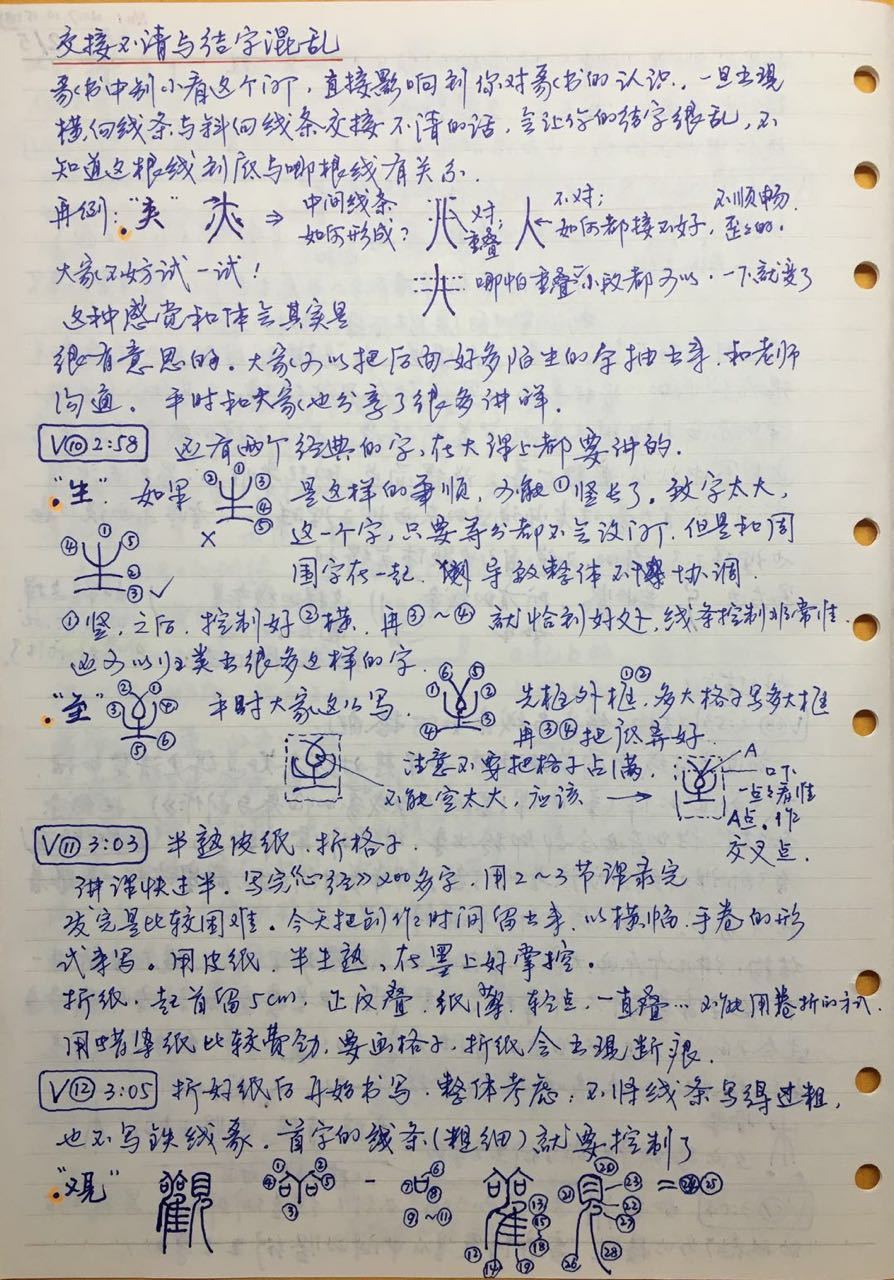 交接不清与结字混乱
篆书中别小看这个问题，直接影响到你对篆书的认识，一旦出现
横向线条与斜向线条交接不清的话，会让你的结字很乱，不
知道这根线到底与哪根线有关系．
再例："夹" ⇒ 中间线条如何形成？ 对；重叠 不对；如何都接不好，不顺畅．歪歪的．
大家不妨试一试！ 哪怕重叠一小段都可以．一下就变了
这种感觉和体会其实是
很有意思的。大家可以把后面好多陌生的字抽出来，和老师
沟通。平时和大家也分享了很多讲解．
V⑩ 2:58 还有两个经典的字，在大课上都要讲的．
"生"：如果 ②①③④⑤ × 是这样的笔顺，可能①竖长了．致字太大，
这一个字，只要等分都不会没问题，但是和周
围字在一起．导致整体不协调．
④①⑤②③ ✓
①竖，之后，控制好②横．再③~④就恰到好处，线条控制非常准．
还可以归类出很多这样的字．
"至" ②①④③⑤⑥ 平时大家这么写． ⑥⑤①②④③ 先框外框①②，多大格子写多大框
再③④把底弄好．
注意不要把格子占满． A
不能空太大，应该 ⟶ 一点点看准A点．作交叉点．
V⑪ 3:03 半熟皮纸．折格子．
讲课快过半．写完《心经》200多字，用2~3节课录完
发完是比较困难。今天把创作时间留出来．以横幅．手卷的形
式来写。用皮纸．半生熟、在墨上好掌控。
折纸．起首留5cm．正反叠．纸薄．轻点，一直叠…不能用卷折的方式．
用蜡笺纸比较费劲，要画格子，折纸会出现断痕．
V⑫ 3:05 折好纸后开始书写．整体考虑，不将线条写得过粗，
也不写铁线篆．首字的线条（粗细）就要控制了
"观" ①②④⑤③ - ⑥⑦⑧ ⑨~⑪ ⑫⑬⑭⑮~⑱⑲ ⑳㉑㉒㉓㉖㉗㉘ =㉔㉕